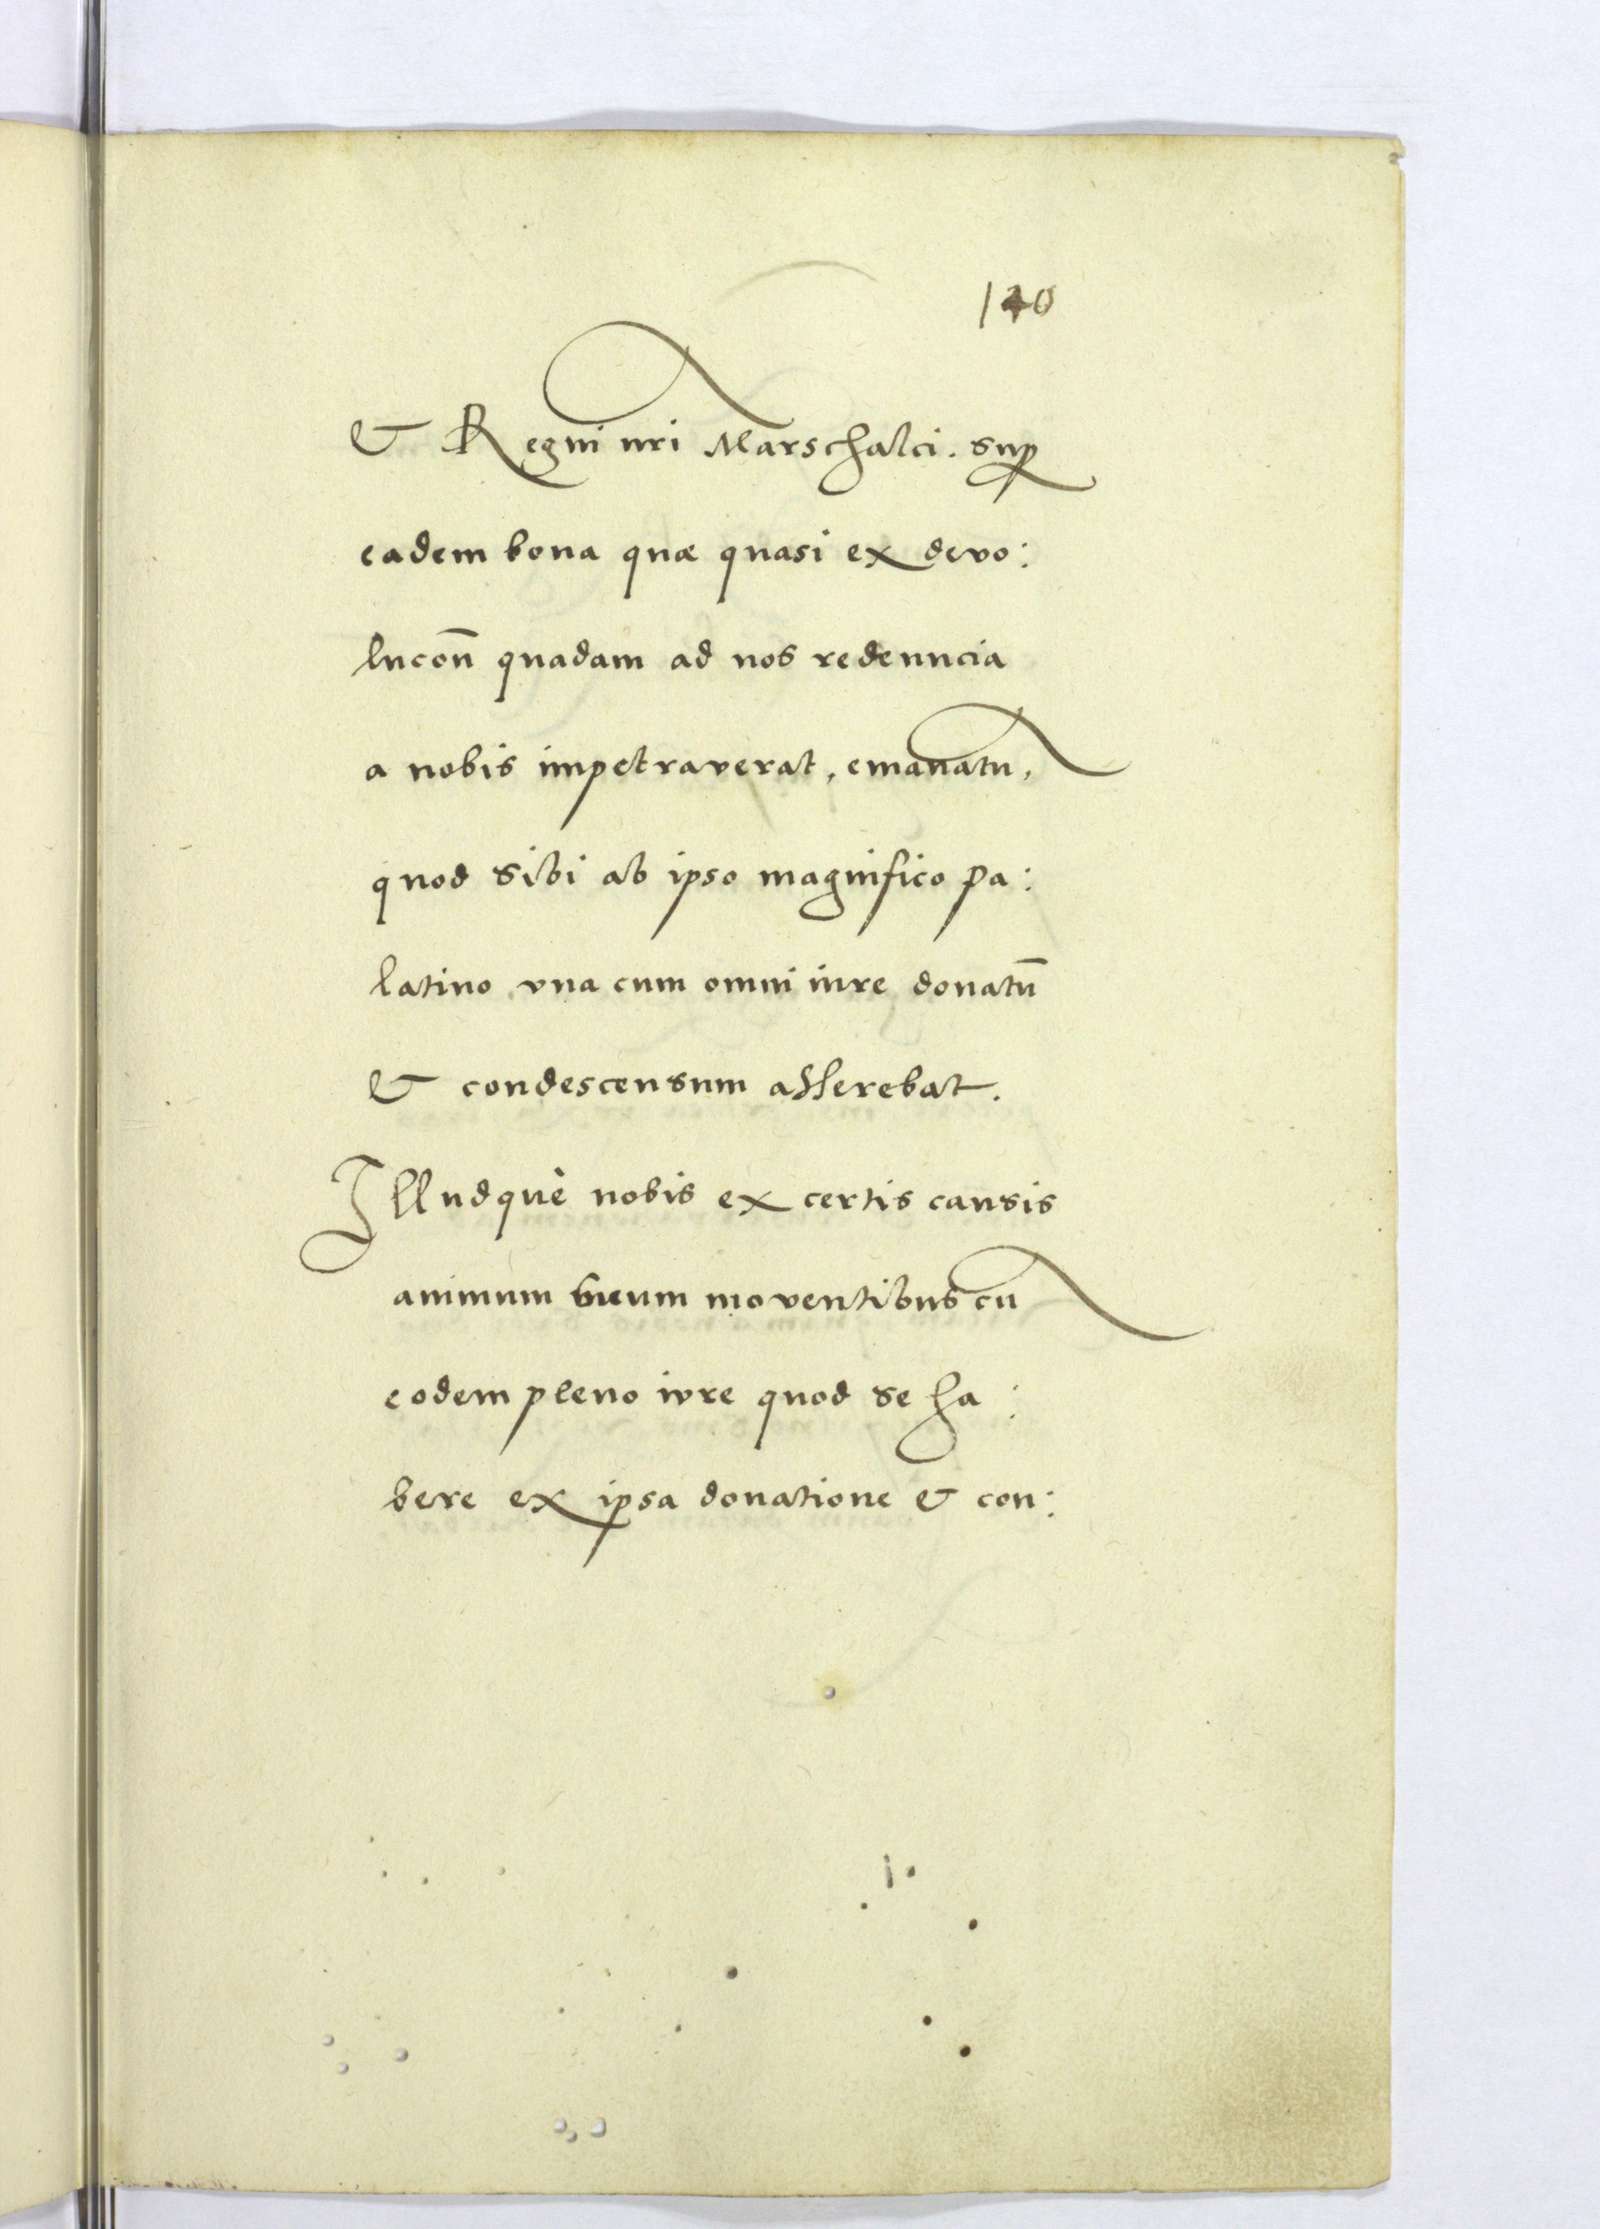 140
& Regni nri Marschalci. sup
eadem bona quæ quasi ex devo:
lucōn quadam ad nos redeuncia
a nobis impetraverat, emanatu,
quod sibi ab ipso magnifico Pa:
latino vna cum omni iure donatū
& condescensum asserebat.
Illudquè nobis ex certis causis
animum suum moventibus cu
eodem pleno ivre quod se ha:
bere ex ipsa donatione & con: